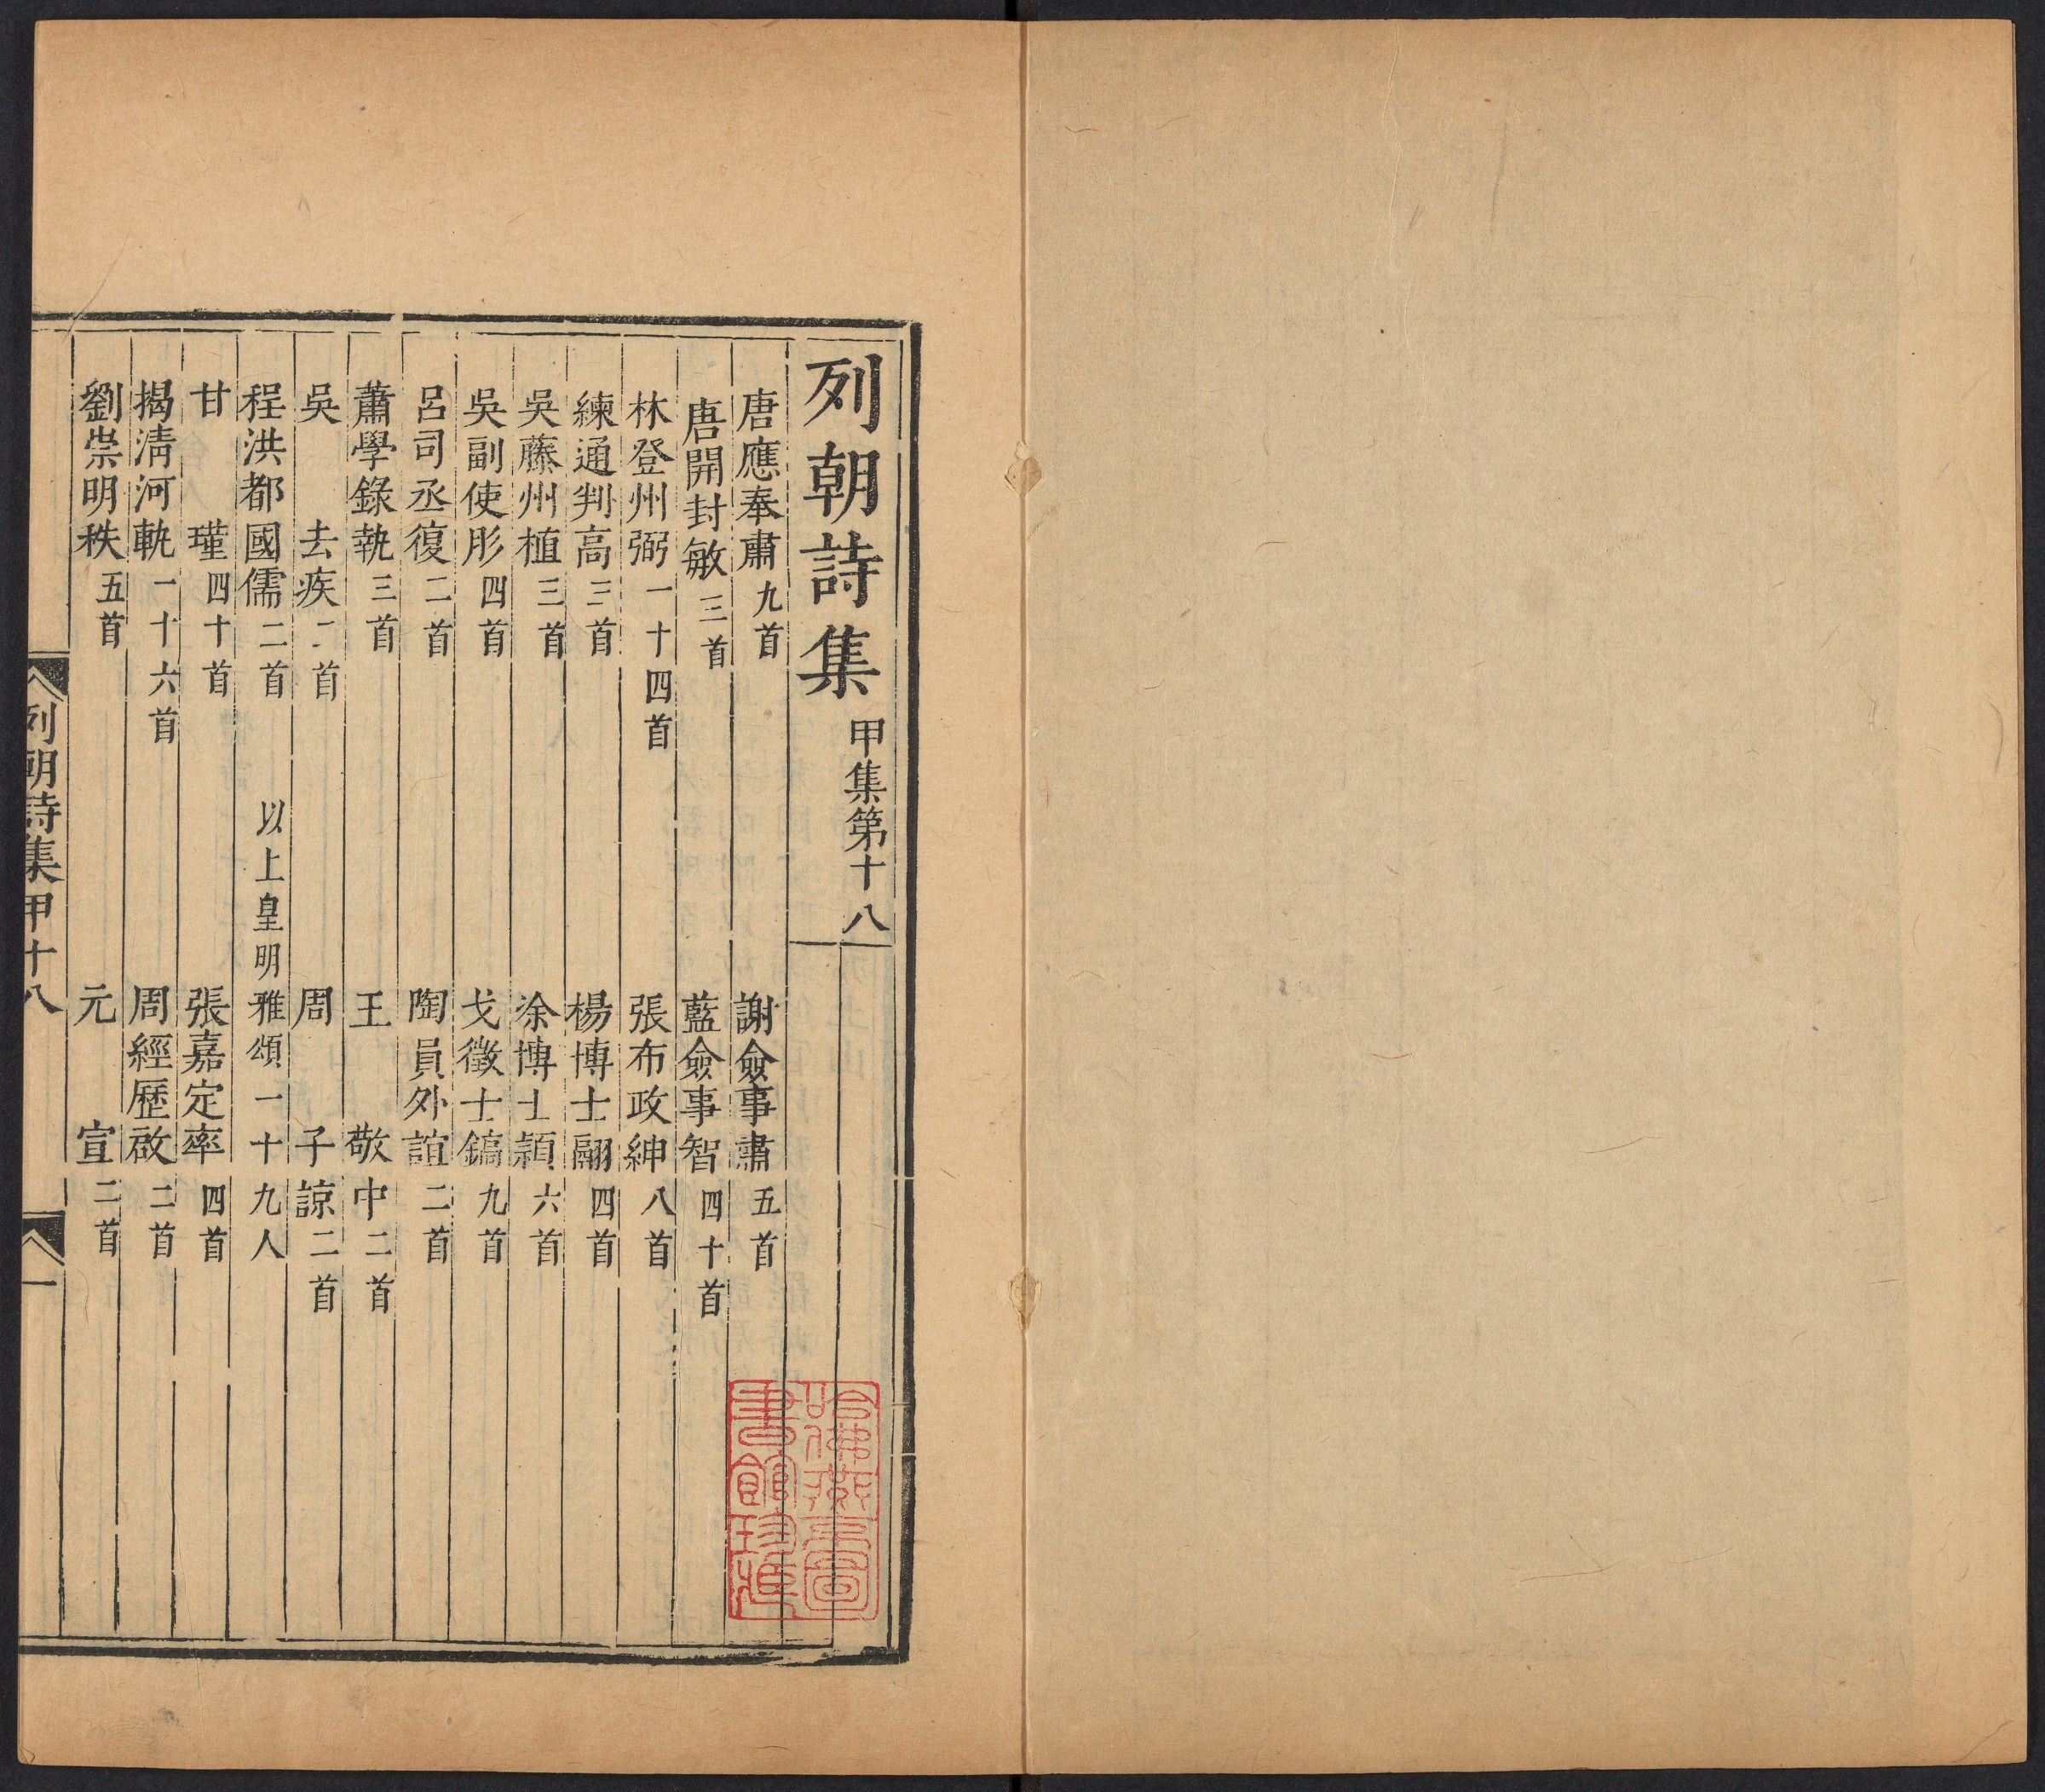 列朝詩集 甲集第十八
唐應奉肅 九首 謝僉事肅 五首
唐開封敏 三首 藍僉事智 四十首
林登州弼 一十四首 張布政紳 八首
練通判高 三首 楊博士翮 四首
吳藤州植 三首 涂博士潁 六首
吳副使彤 四首 戈徵士鎬 九首
呂司丞復 二首 陶員外誼 二首
蕭學錄執 三首 王敬中 二首
吳去疾 二首 周子諒 二首
程洪都國儒 二首 以上皇明雅頌一十九人
甘瑾 四十首 張嘉定率 四首
揭清河軏 一十六首 周經歷啟 二首
劉崇明秩 五首 元宣 二首
列朝詩集甲十八 一
哈佛燕京圖
書館珍藏